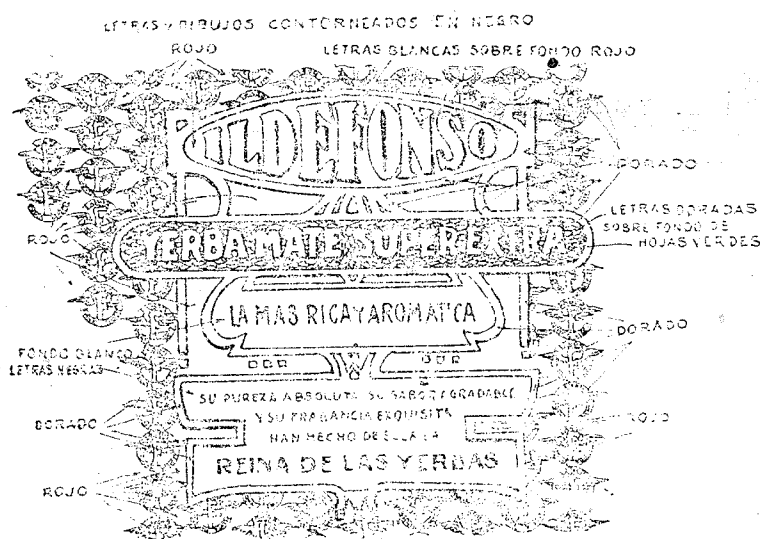 LETRAS Y DIBUJOS CONTORNEADOS EN NEGRO
ROJO
LETRAS BLANCAS SOBRE FONDO ROJO
ILDEFONSO
DORADO
LETRAS DORADAS
SOBRE FONDO DE
HOJAS VERDES
ROJO
YERBA MATE SUPER EXTRA
LA MAS RICA Y AROMATICA
DORADO
FONDO BLANCO
LETRAS NEGRAS
SU PUREZA ABSOLUTA SU SABOR AGRADABLE
Y SU FRAGANCIA EXQUISITA
DORADO
ROJO
HAN HECHO DE ELLA LA
REINA DE LAS YERBAS
ROJO